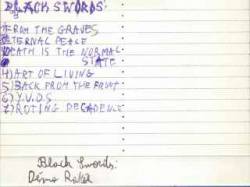 BLACK SWORDS:
FROM THE GRAVES
ETERNAL PEACE
DEATH IS THE NORMAL
STATE
4) ART OF LIVING
5) BACK FROM THE FRONT
6) Y.U.D.S
7) ROTING DECADENCE
Black Swords: